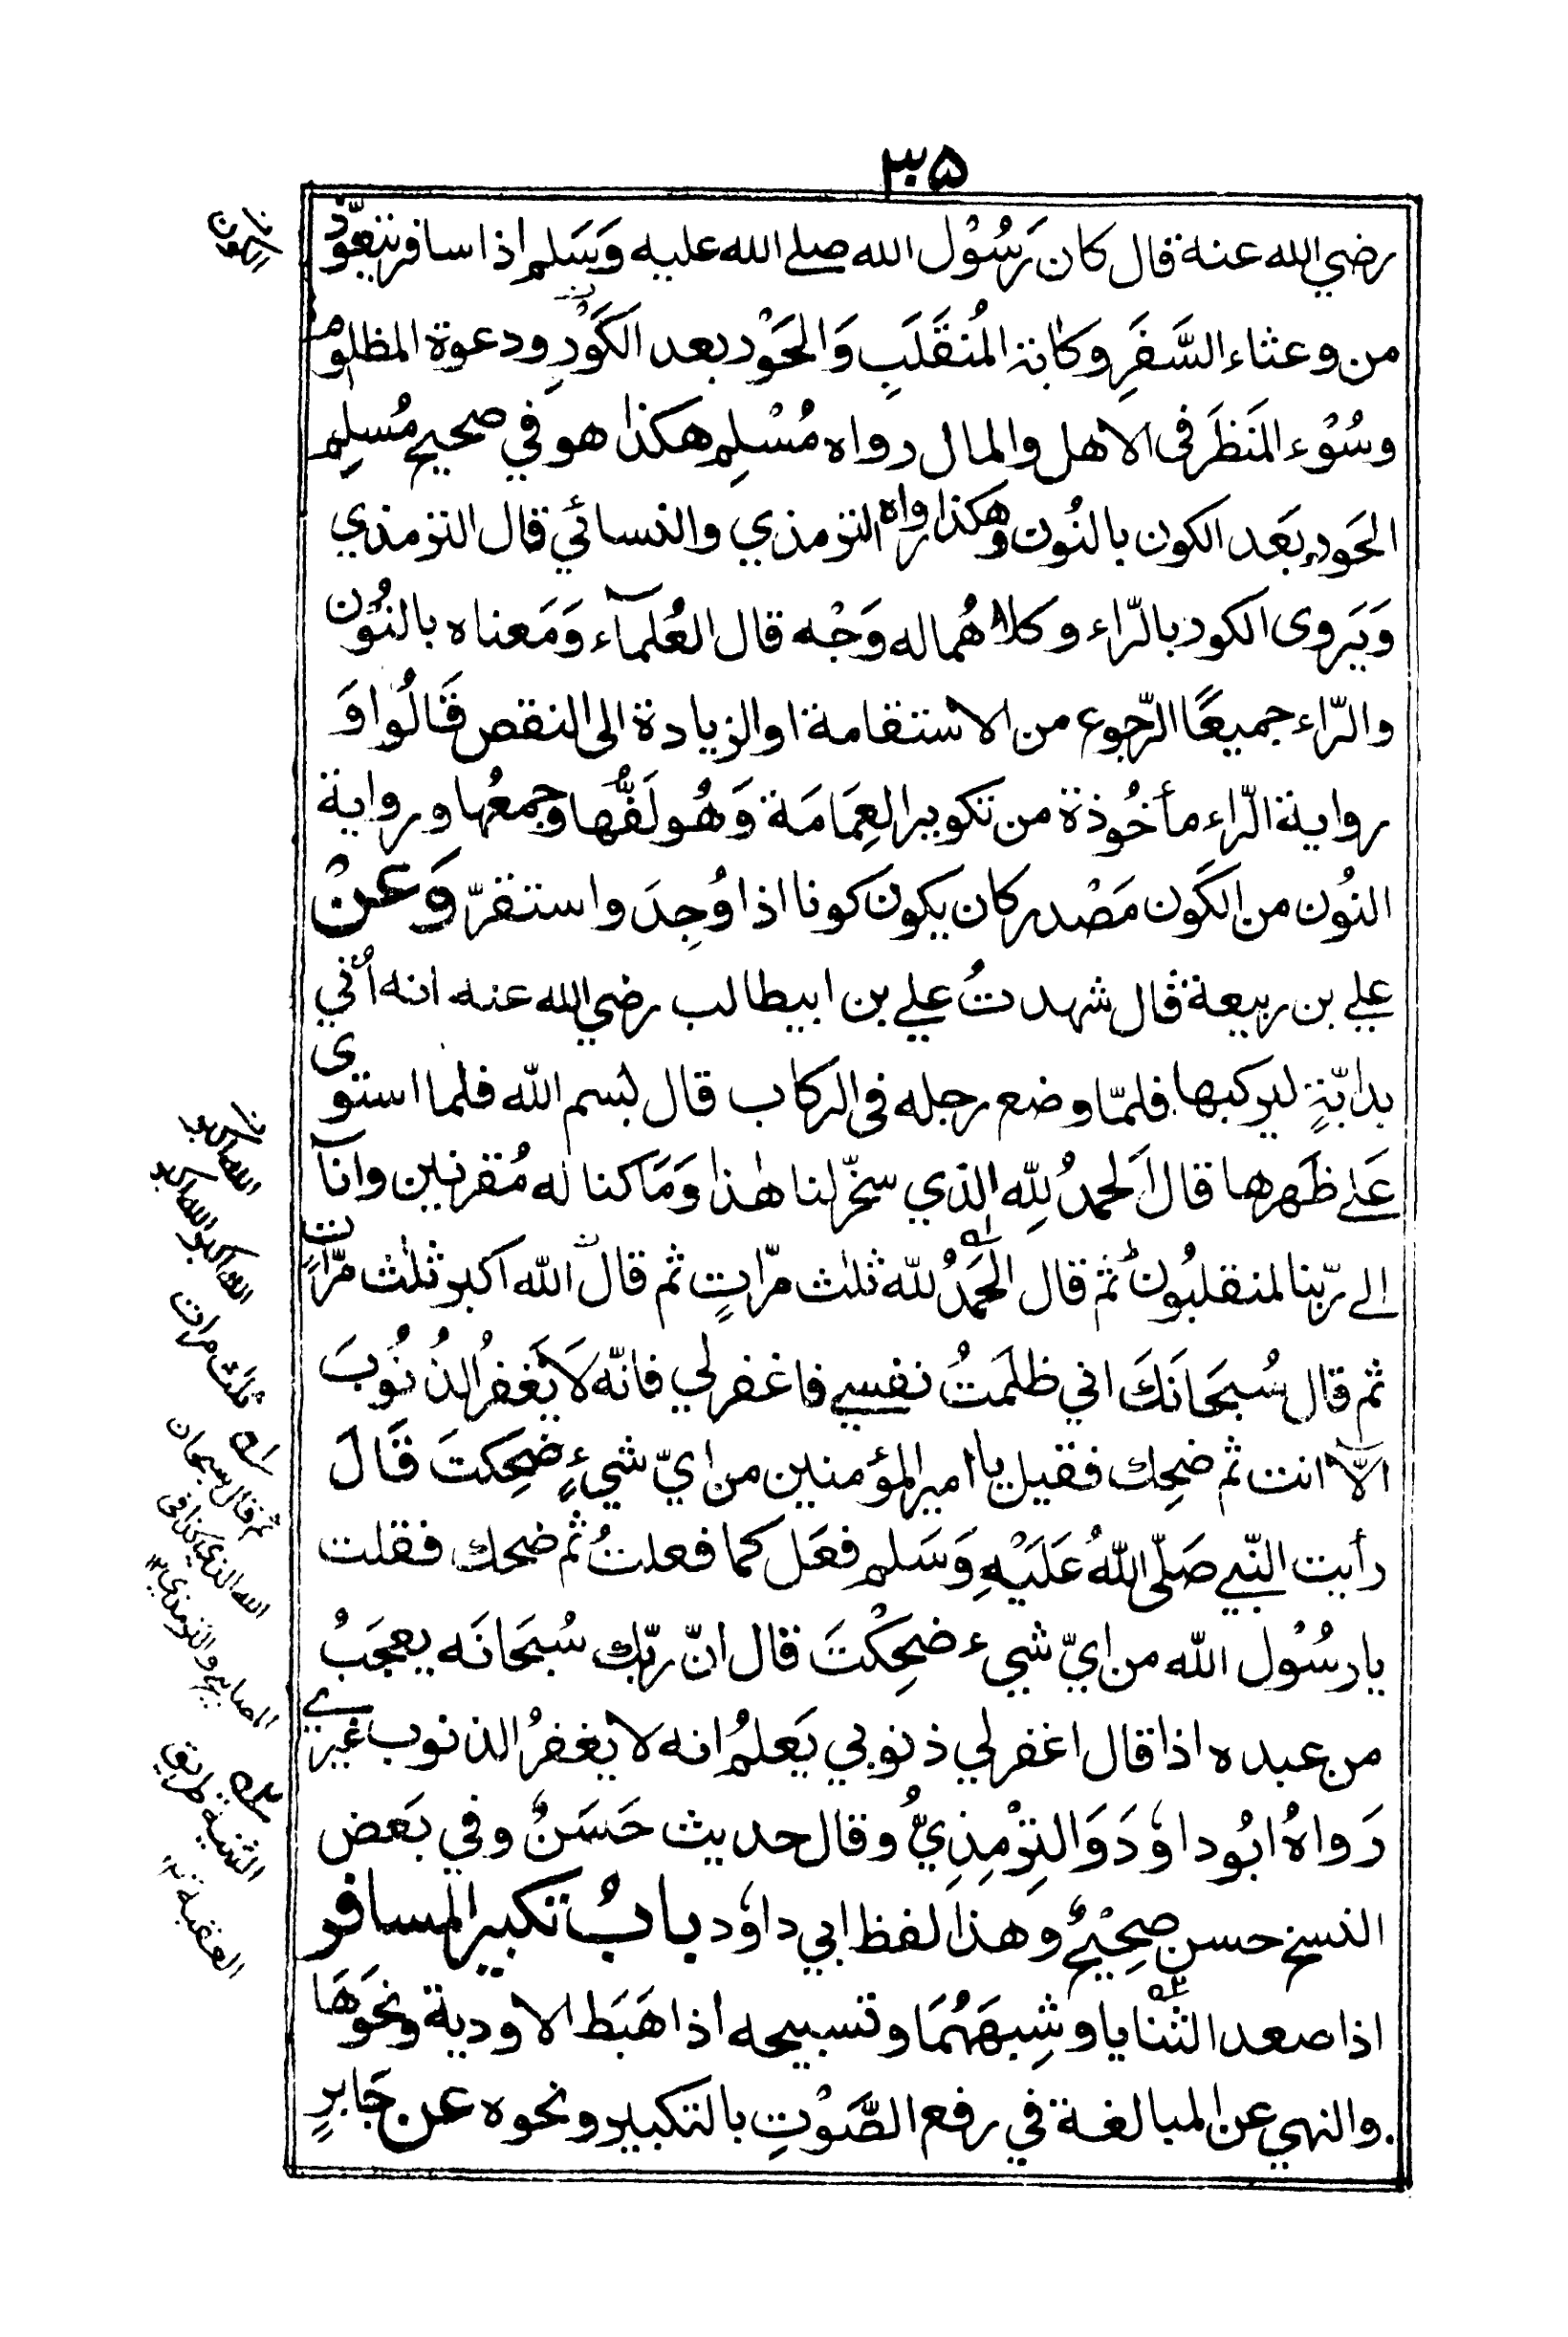 ٣٠۵
رضي الله عنة قال كان رَسُوْل الله صلے الله عليه وَسَلم اذا سافر يتعوّذ
من وعثاء السَّفَرِ وكابۃ المُنقَلَبِ وَالحَوْر بعد الكَوْرِ ودعوة المظلوم
وسُوْء المَنظَر فى الاهل والمال رواه مُسْلِم هكذا هو في صحيح مُسلِم
الحَور بَعَد الكون بالنُون وهكذا رواه الترمذي والنسائي قال الترمذي
وَيَروى الكور بالرّاء وكلاهُما له وَجْه قال العُلمآء وَمَعناه بالنُون
والرّاء جميعًا الرّجوع من الاستقامة او الزيادة الى النقص قَالُوا وَ
رواية الرّاء مأخُوذة من تكوير العِمَامَة وَهُو لَفُّها وجمعُها ورواية
النُون من الكَون مَصْدر كان يكون كونا اذا وُجِدَ واستقرّ وَعنْ
علے بن ربيعة قال شهدتُ علے بن ابيطالب رضي الله عنه انه أُتي
بدابّةٍ ليركبها فلمّا وضع رجله فى الركاب قال بسم الله فلما استوى
عَلے ظَهرها قال اَلحمدُ لِلّه الذي سخّر لنا هٰذا وَمَا كنا له مُقرنين وانآ
الے ربّنا لمنقلبُون ثم قال الحَمدُ للّه ثلٰث مرّاتٍ ثم قال الله اكبر ثلٰث مرّاتٍ
ثم قال سُبحَانَكَ اني ظلَمتُ نفسے فاغفر لي فانّه لَا يَغفرُ الذُنُوبَ
الّا انت ثم ضحِك فقيل يا امير المؤمنين من ايّ شيءٍ ضحِكتَ قَالَ
رأيت النّبے صَلّى اللّهُ عَلَيْهِ وَسَلم فعَل كما فعلتُ ثم ضحك فقلت
يا رسُوْل الله من ايّ شيء ضحِكْتَ قال انّ ربّك سُبحَانَه يعجَبُ
من عبده اذا قال اغفر لي ذنوبي يَعلمُ انه لا يغفرُ الذنوب غيرے
رَواهُ ابُو داوٗدَ وَالتِرْمِذِيُّ وقال حديث حَسَنٌ وفي بَعَض
النسخ حسن صحِيْحٌ وهذا لفظ ابي داوٗد بابُ تكبير المسافر
اذا صعد الثنايا وشِبهَهُمَا وتسبيحه اذا هَبَط الاودية ونحَوهَا
والنهي عن المبالغة في رفع الصَّوْتِ بالتكبير ونحوه عن جَابرٍ
الكون
الله اكبر
الله اكبر الله اكبر
ثلٰث مرات
ثم قال سبحان
الله الذي كذا في
المصابيح والترمذي ١٢
الثنية طريق
العقبة ١٢